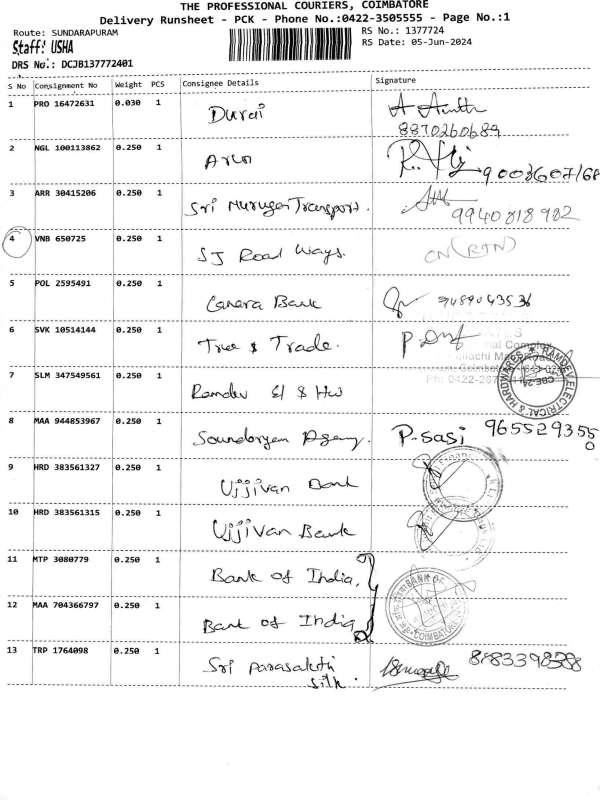 THE PROFESSIONAL COURIERS, COIMBATORE
Delivery Runsheet - PCK - Phone No.:0422-3505555 - Page No.:1
Route: SUNDARAPURAM RS No.: 1377724
Staff: USHA RS Date: 05-Jun-2024
DRS No.: DCJB137772401
S No Consignment No Weight PCS Consignee Details Signature
1 PRO 16472631 0.030 1 Durai
8870260689
2 NGL 100113862 0.250 1 Arun 9003607168
3 ARR 30415206 0.250 1 Sri Murugan Transport.
9940818982
4 VNB 650725 0.250 1 SJ Road Ways. CN (RTN)
5 POL 2595491 0.250 1 Canara Bank 9489043536
6 SVK 10514144 0.250 1 Tree & Trade.
7 SLM 347549561 0.250 1 Ramdev El & HW
RAMDEV ELECTRICAL & HARDWARES
8 MAA 944853967 0.250 1 Soundaryam Agency. P. Sasi 9655293550
9 HRD 383561327 0.250 1 Ujjivan Bank
10 HRD 383561315 0.250 1 Ujjivan Bank
11 MTP 3080779 0.250 1 Bank of India,
BANK OF
COIMBATORE
12 MAA 704366797 0.250 1 Bank of India
13 TRP 1764098 0.250 1 Sri Parasakthi
Silk.